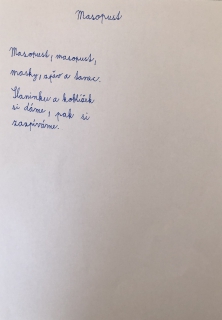 Masopust
Masopust, masopust,
masky, zpěv a tanec.
Slaninku a koblížek
si dáme, pak si
zazpíváme.